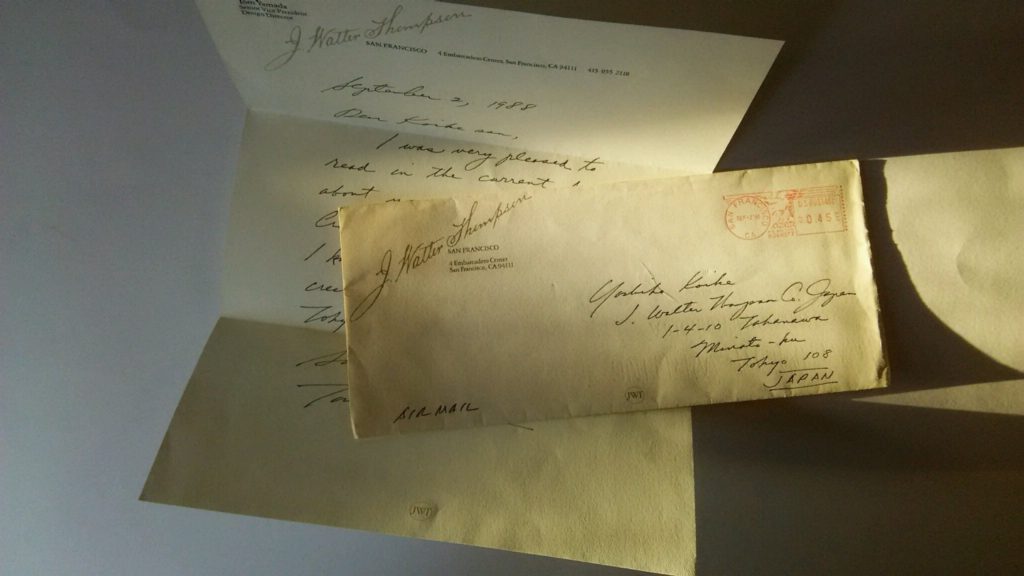 Yamada
Senior Vice President
Design Director
J. Walter Thompson
SAN FRANCISCO 4 Embarcadero Center, San Francisco, CA 94111 415 955 2118
September 2, 1988
Dear Koike san,
I was very pleased to
read in the current
about
I
Tokyo
JWT
J. Walter Thompson
SAN FRANCISCO
4 Embarcadero Center
San Francisco, CA 94111
SAN FRANCISCO
CA
U.S. POSTAGE
0.45
Yoshiko Koike
J. Walter Thompson Co. Japan
1-4-10 Takanawa
Minato-ku
Tokyo 108
JAPAN
AIR MAIL
JWT